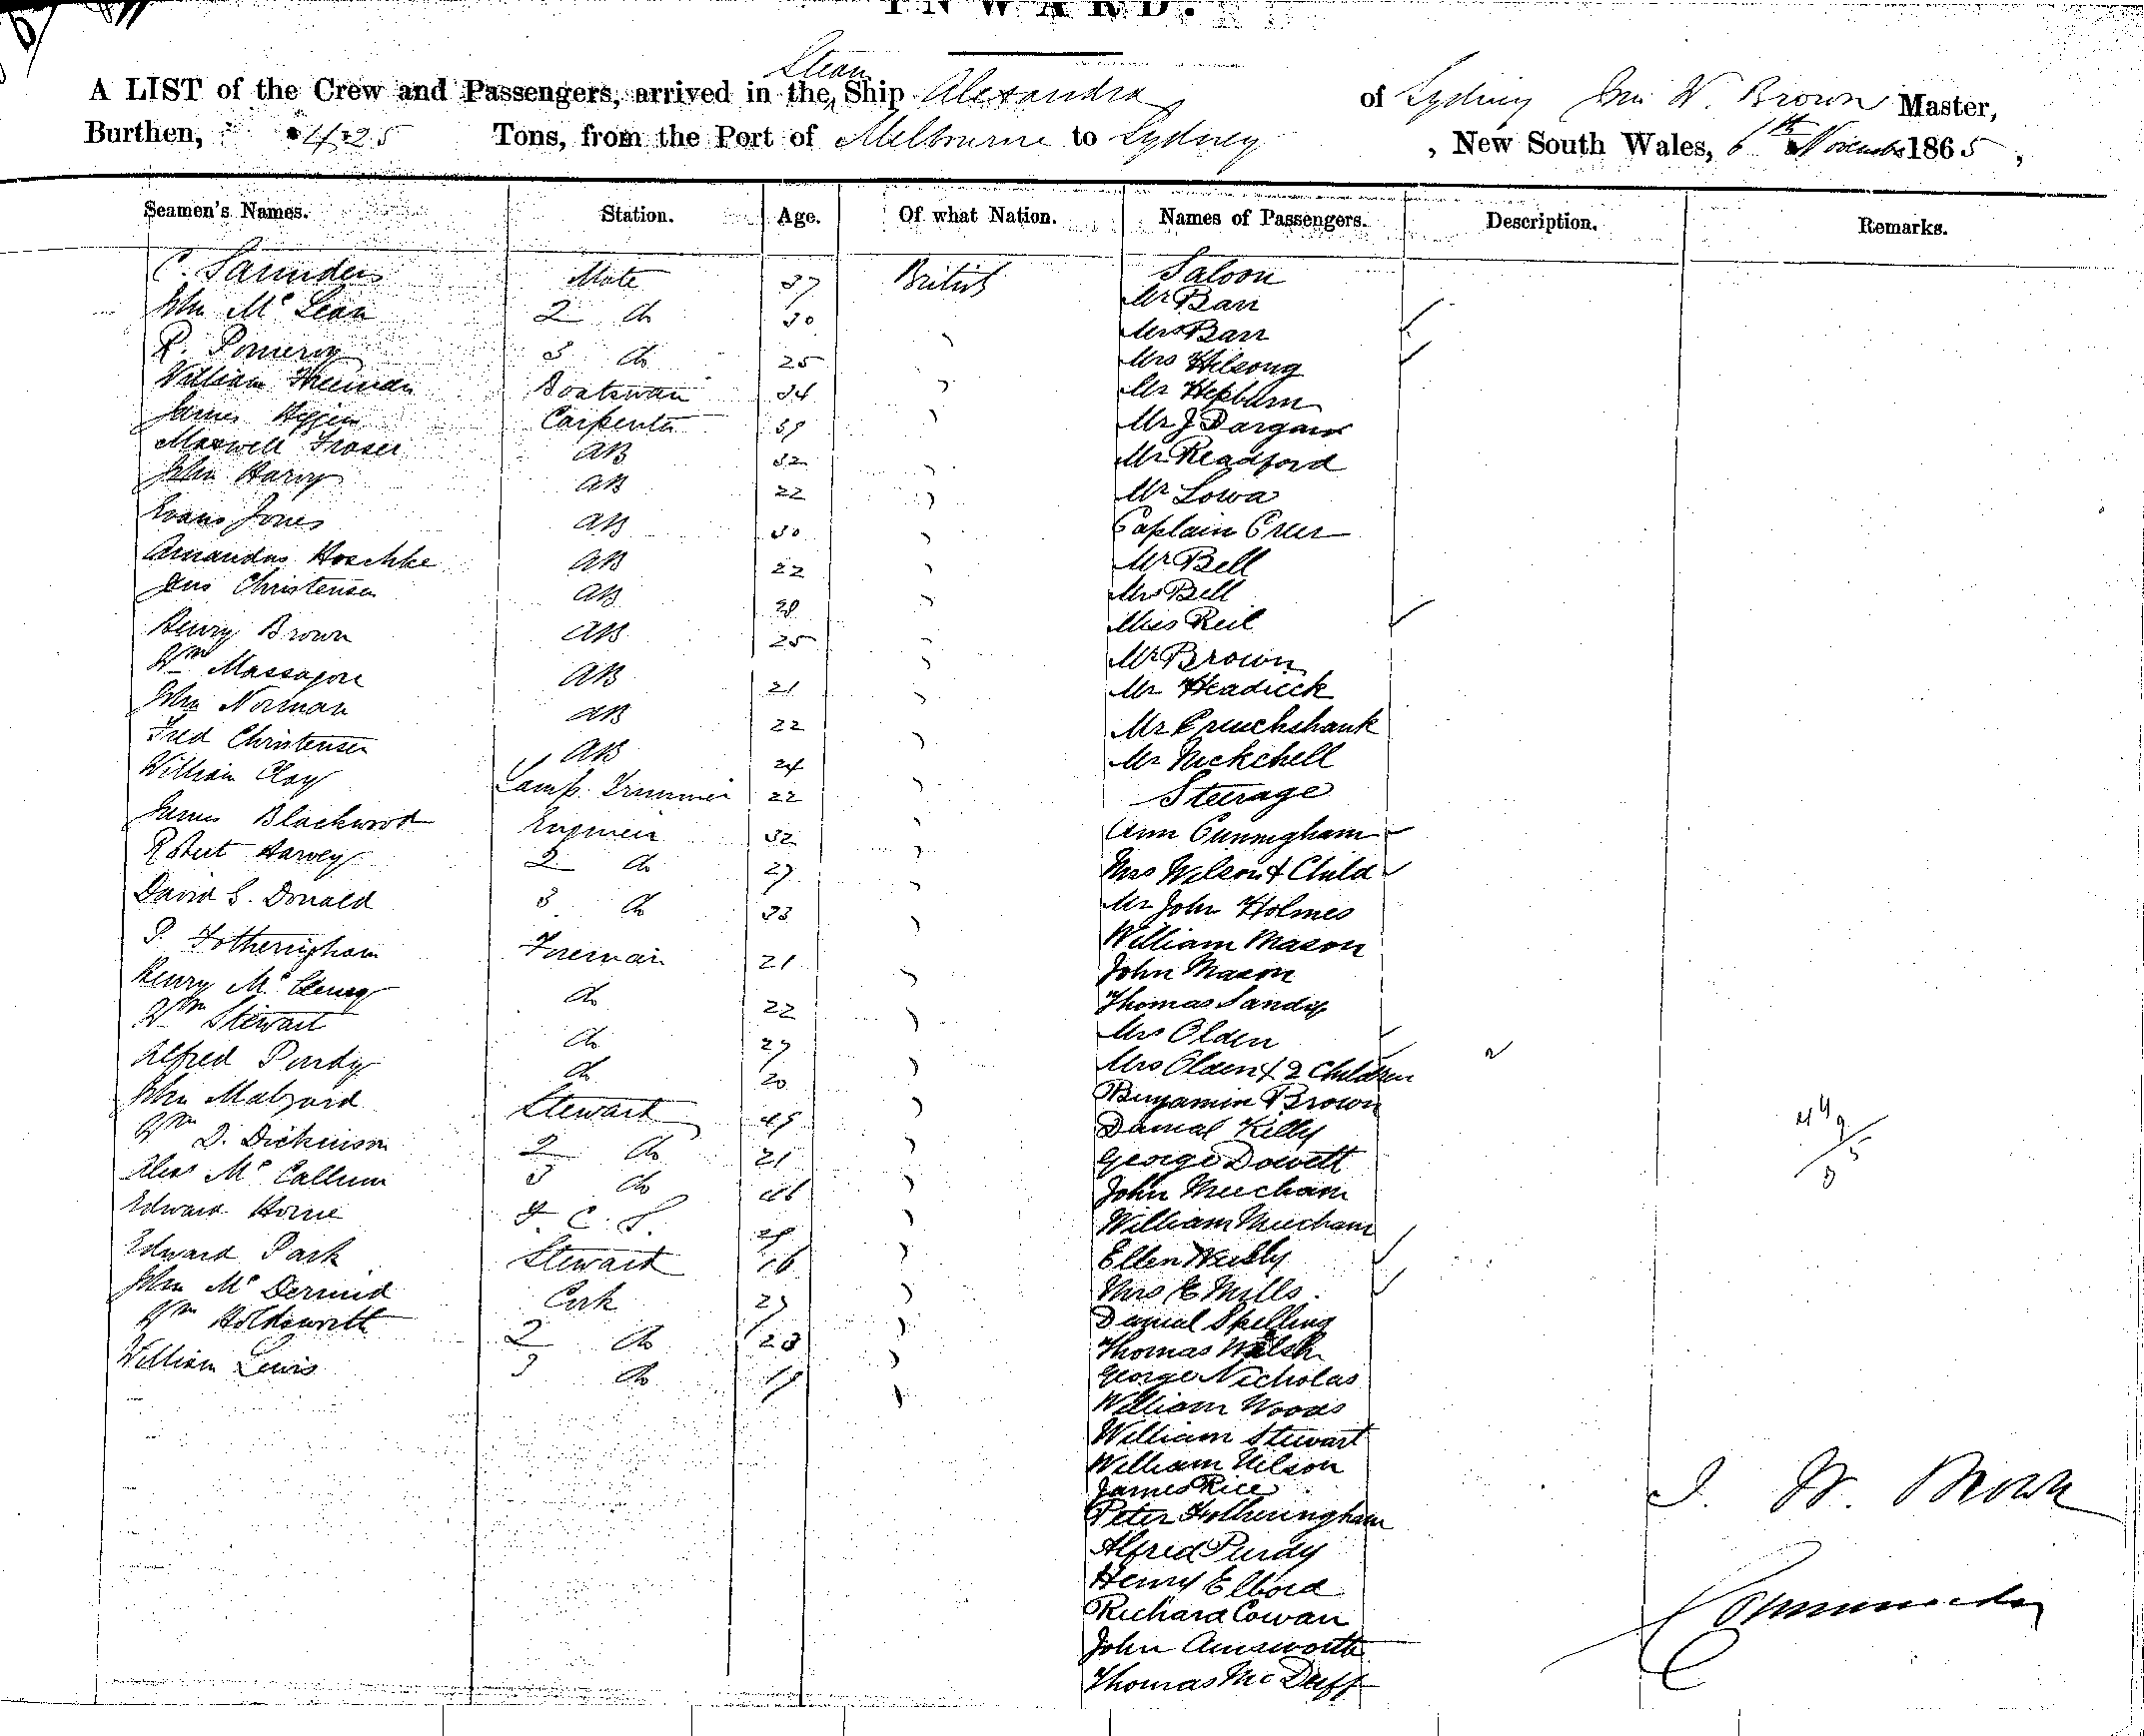 INWARD.
Steam
A LIST of the Crew and Passengers, arrived in the Ship Alexandra of Sydney Jno W. Brown Master,
Burthen, 425 Tons, from the Port of Melbourne to Sydney , New South Wales, 6th November 1865,
Seamen's Names. Station. Age. Of what Nation. Names of Passengers. Description. Remarks.
C. Saunders Mate 37 British Saloon
John McLean 2 do 30 Mr Barr
R. Pomeroy 3 do 25 Mrs Barr
William Freeman Boatswain 34 Mrs Hilsong
James Carpenter 39 Mr Hepburn
Maxwell Fraser AB 32 Mr J Dargan
John Harvy AB 22 Mr Readford
Evans Jones AB 30 Mr Lowa
Amandus Hoschke AB 22 Captain Creer
Jens Christensen AB 28 Mr Bell
Henry Brown AB 25 Mrs Bell
Wm AB 21 Miss Reil
John Norman AB 22 Mr Brown
Fred Christensen AB 24 Mr Headick
William Clay Lamp Trimmer 22 Mr Cruickshank
James Blackwood Engineer 32 Mr Nickchell
Robert Harvey 2 do 27 Steerage
David S. Donald 3 do 33 Ann Cunnigham
P. Fotheringham Fireman 21 Mrs Wilson & Child
Henry Mc do 22 Mr John Holmes
Wm Stewart do 27 William Mason
Alfred Purdy do 20 John Mason
John Malzard Steward 45 Thomas Sandy
Wm D. Dickinson 2 do 21 Mrs Olden
Alex McCallum 3 do 46 Mrs Olden & 2 Children
Edward Horne F. C. S. 29 Benjamin Brown
Edward Park Steward 16 Danial Kelly
John McDermid Cook 27 George Dowett
Wm Holdsworth 2 do 23 John Meecham
William Lewis 3 do 19 William Meecham
Ellen
Mrs E Mills.
Danial Skelling
Thomas Walsh
George Nicholas
William Woods
William Stewart
William Nilson
James Rice
Peter Fotheringham
Alfred Purdy
Henry Elbord
Richard Cowan
John Ainsworth
Thomas McDuff
J. W. Brown
Commander